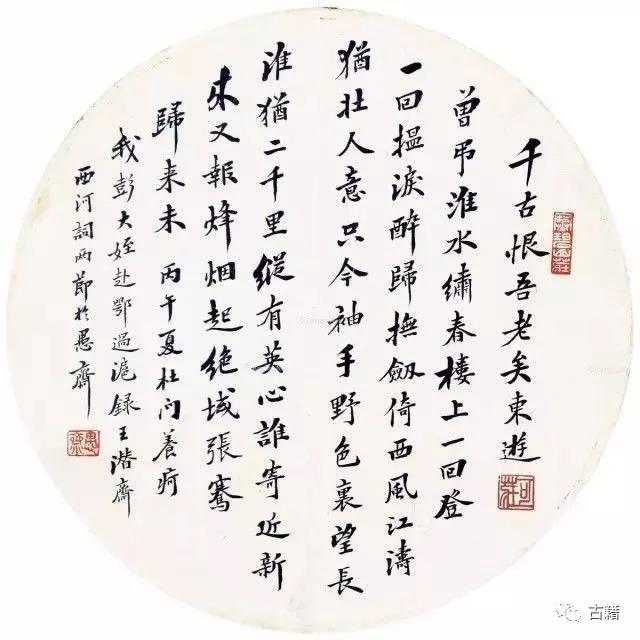 千古恨吾老矣東遊
曾弔淮水繡春樓上一回登
一回揾淚醉歸撫劔倚西風江濤
猶壯人意只今袖手野色裏望長
淮猶二千里縱有英心誰寄近新
来又報烽烟起絕域張騫
歸来未 丙午夏杜门養疴
我彭大姪赴鄂過滬録王潛齋
西河詞兩節於愚齋
愚齋
古籍